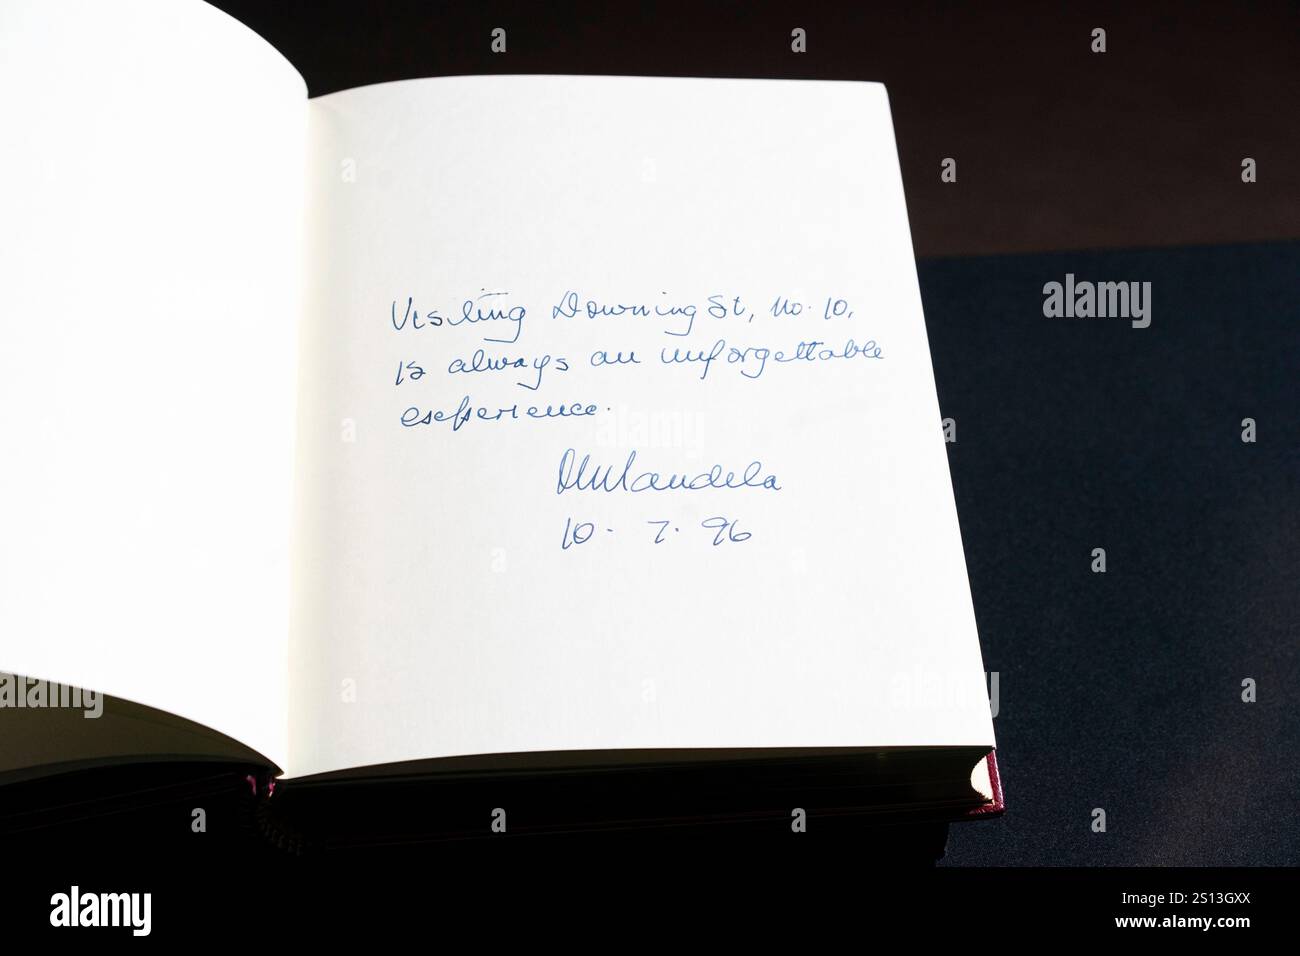 Visiting Downing St, no. 10,
is always an unforgettable
experience.
NMandela
10. 7. 96
a a a
a a a a
alamy
a a a a
a a alamy
a a a a
alamy
Image ID: 2S13GXX
www.alamy.com